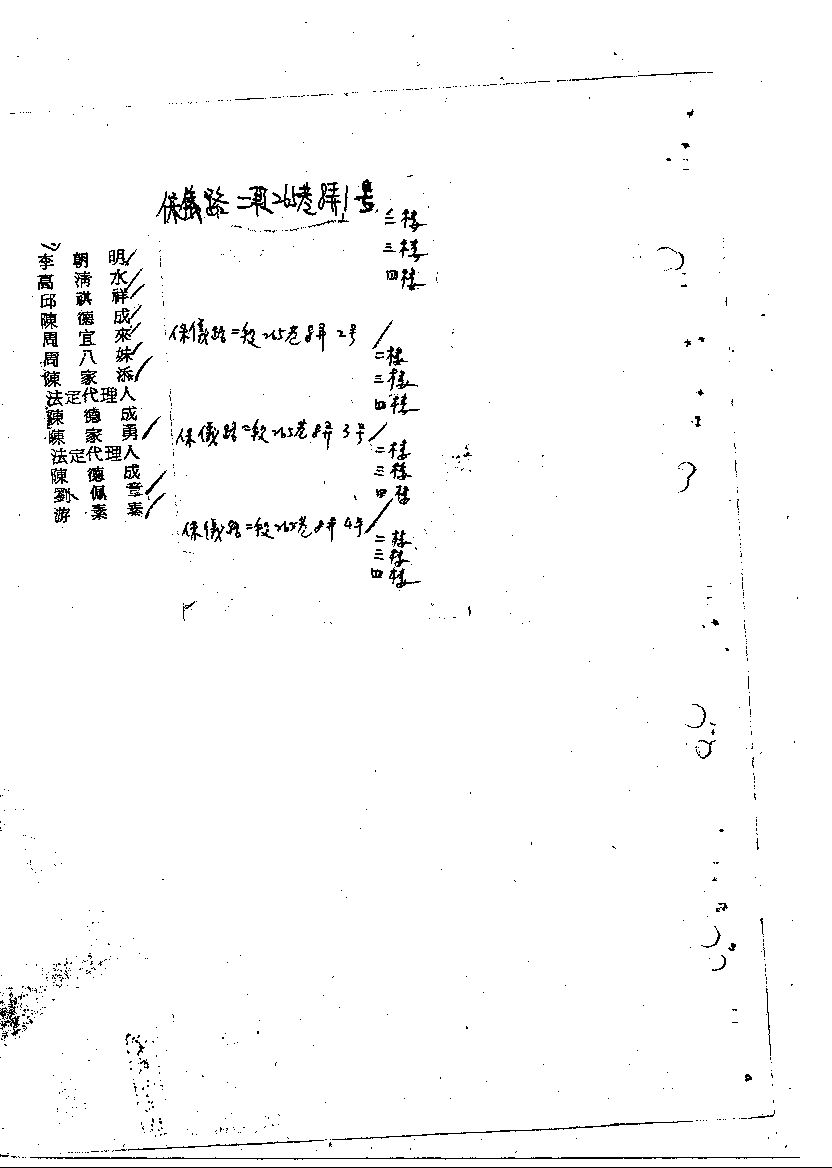 保儀路二段265巷8弄1号
二楼
三楼
四楼
李朝明
高清水
邱祺祥
陳德成
周宜來
周八妹
陳家添
法定代理人
陳德成
陳家勇
法定代理人
陳德成
劉佩章
游素
保儀路二段265巷8弄2号
二楼
三楼
四楼
保儀路二段265巷8弄3号
二楼
三楼
四楼
保儀路二段265巷8弄4号
二楼
三楼
四楼